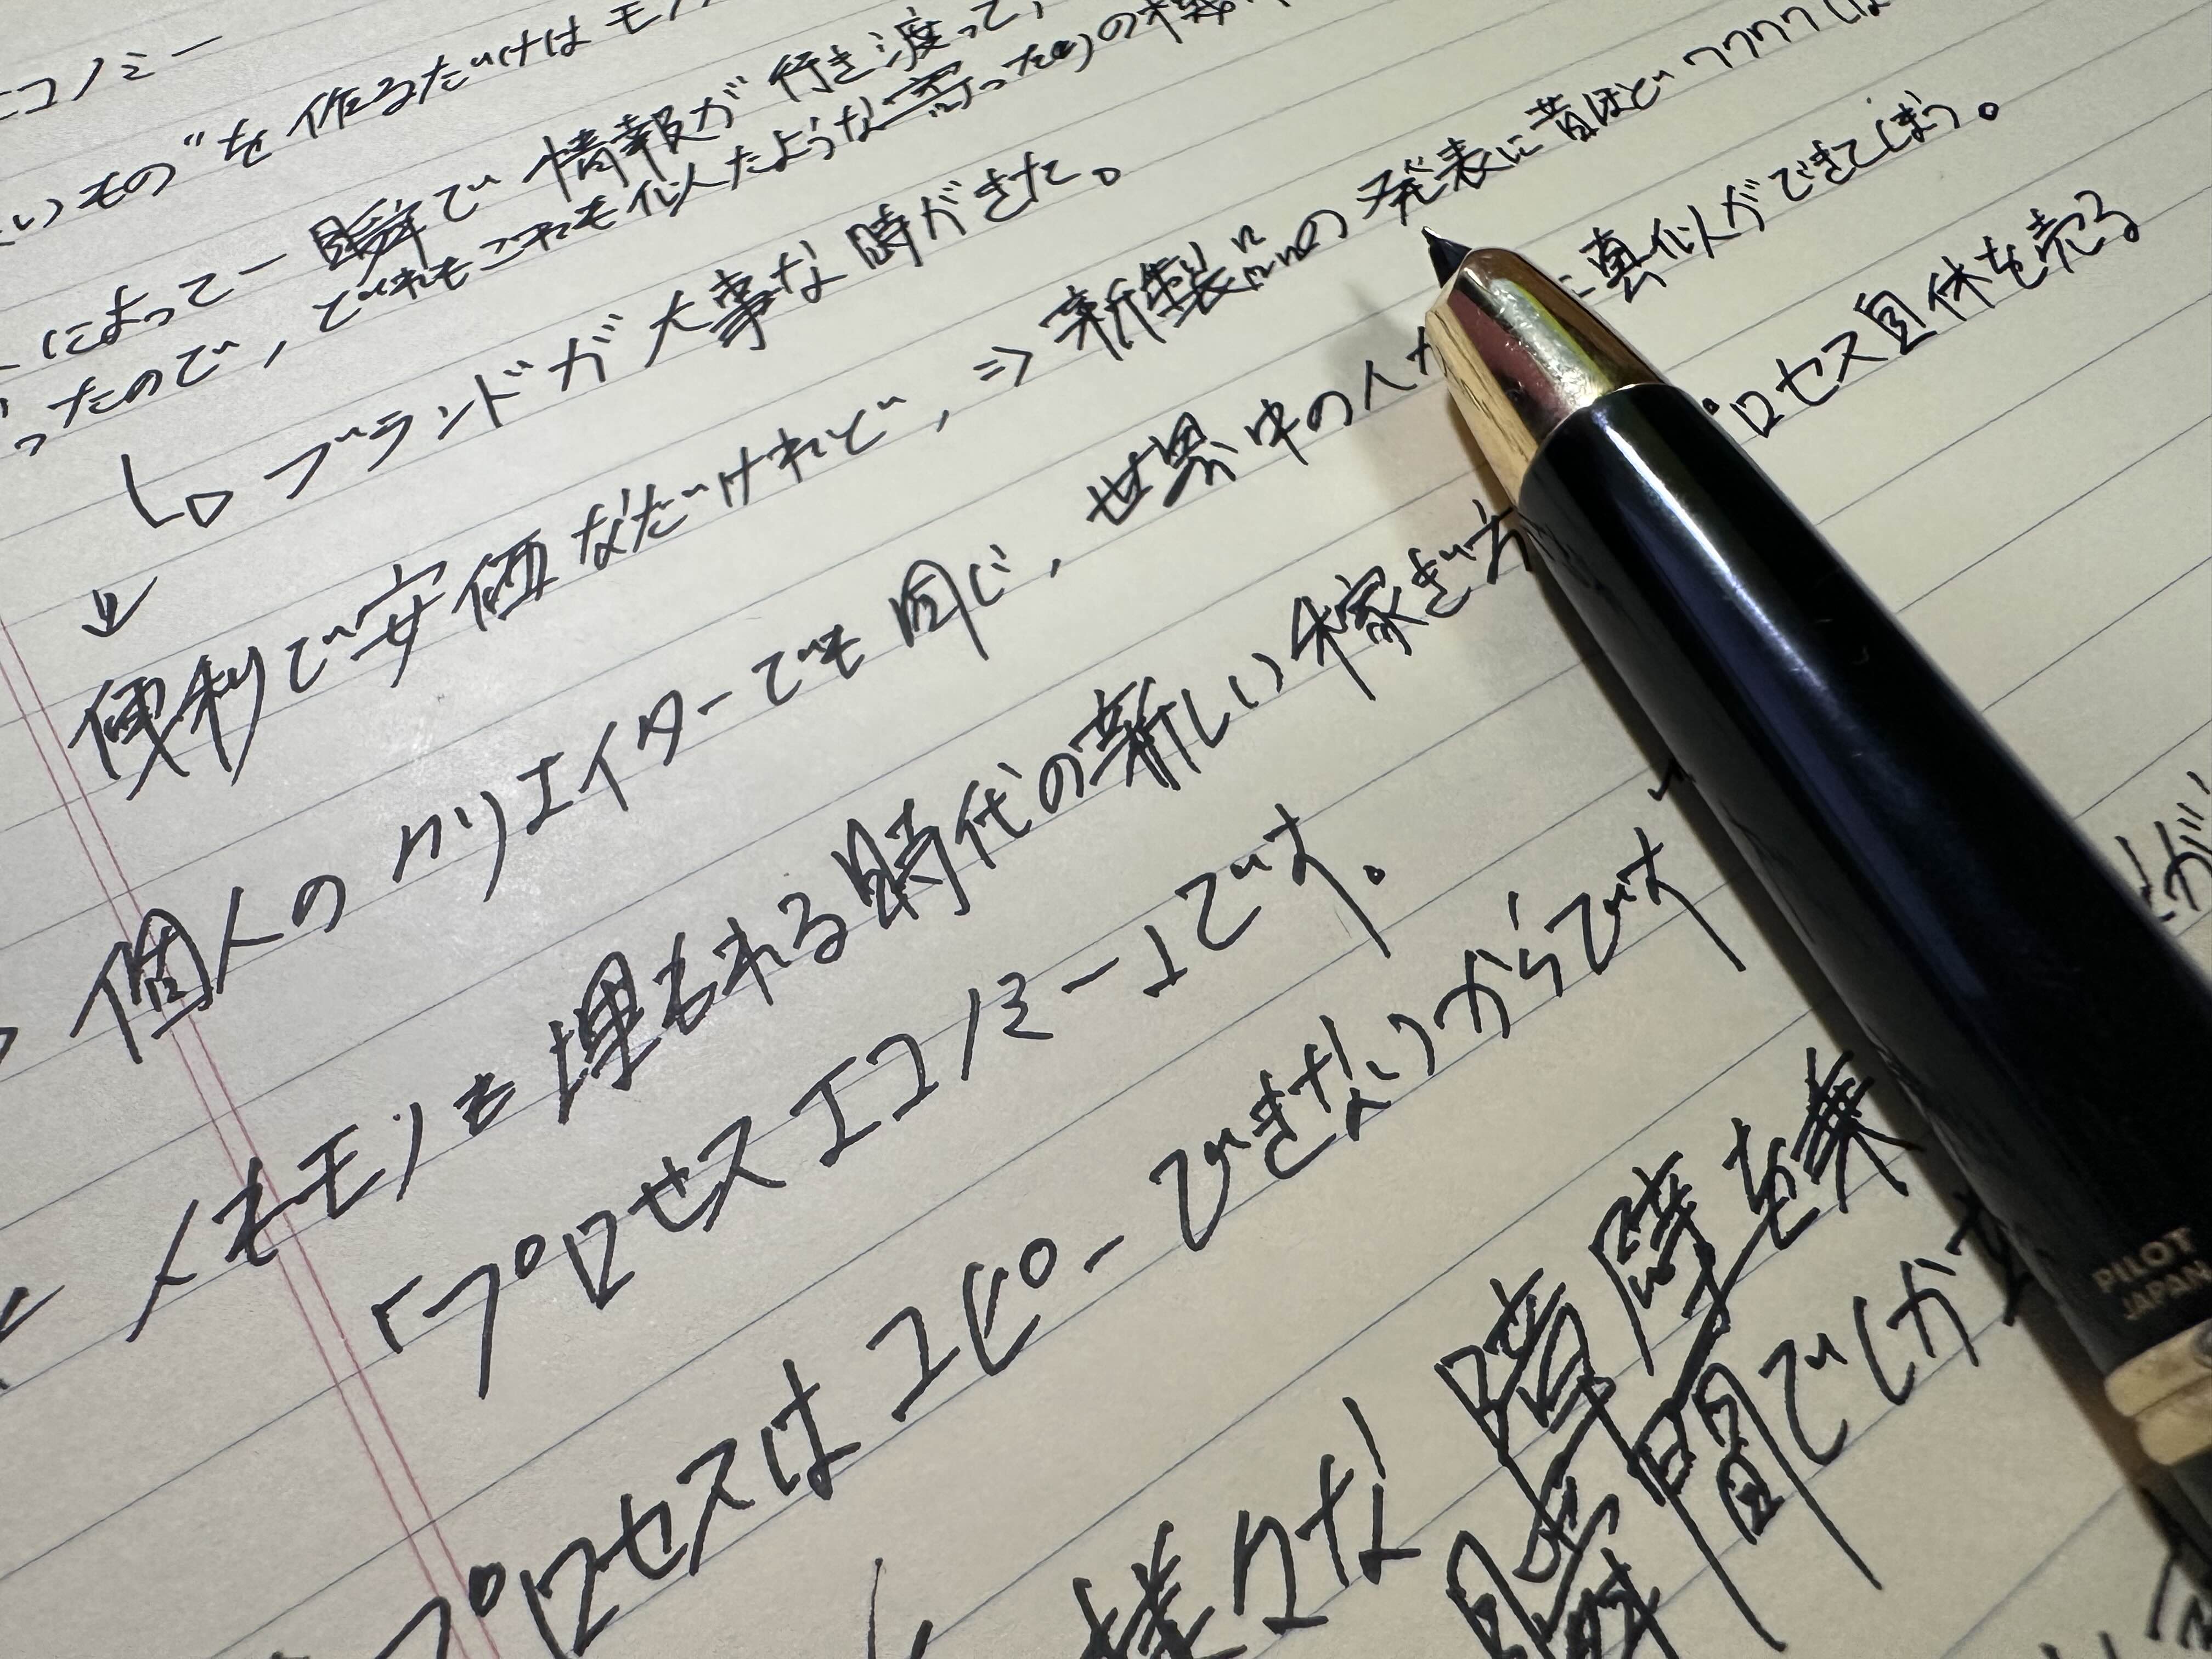 コノミー
いもの"を作るだけはモノ
によって一瞬で情報が行き渡って,
ったので, どれもこれも似たような寄ったりの機
ブランドが大事な時がきた。
便利で安価なだけれど, ⇒ 新製品の発表に昔ほどワクワクしな
個人のクリエイターでも同じ, 世界中の人が に真似ができてしまう。
人もモノも埋もれる時代の新しい稼ぎ方 プロセス自体を売る
「プロセスエコノミー」です。
プロセスはコピーできないからです
様々な障壁を乗
瞬間でしか
PILOT
JAPAN